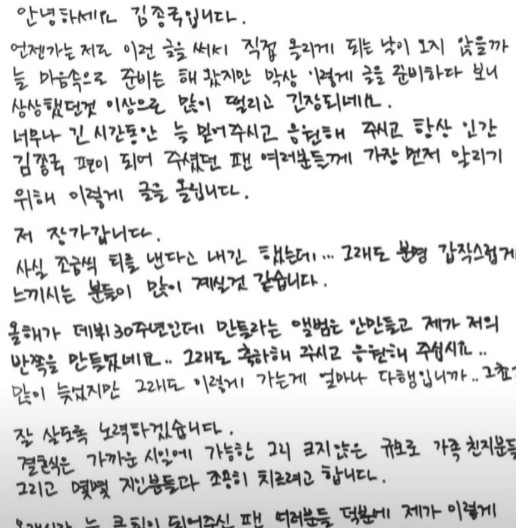 안녕하세요 김종국입니다.
언젠가는 저도 이런 글을 써서 직접 올리게 되는 날이 오지 않을까
늘 마음속으로 준비는 해 왔지만 막상 이렇게 글을 준비하다 보니
상상했던것 이상으로 많이 떨리고 긴장되네요.
너무나 긴 시간동안 늘 믿어주시고 응원해 주시고 항상 인간
김종국 편이 되어 주셨던 팬 여러분들께 가장 먼저 알리기
위해 이렇게 글을 올립니다.
저 장가갑니다.
사실 조금씩 티를 낸다고 내긴 했는데... 그래도 분명 갑작스럽게
느끼시는 분들이 많이 계실것 같습니다.
올해가 데뷔30주년인데 만들라는 앨범은 안만들고 제가 저의
반쪽을 만들었네요.. 그래도 축하해 주시고 응원해 주십시요..
많이 늦었지만 그래도 이렇게 가는게 얼마나 다행입니까.. 그쵸?
잘 살도록 노력하겠습니다.
결혼식은 가까운 시일에 가능한 그리 크지않은 규모로 가족 친지분들
그리고 몇몇 지인분들과 조용히 치르려고 합니다.
늘 큰 힘이 되어주신 팬 여러분들 덕분에 제가 이렇게